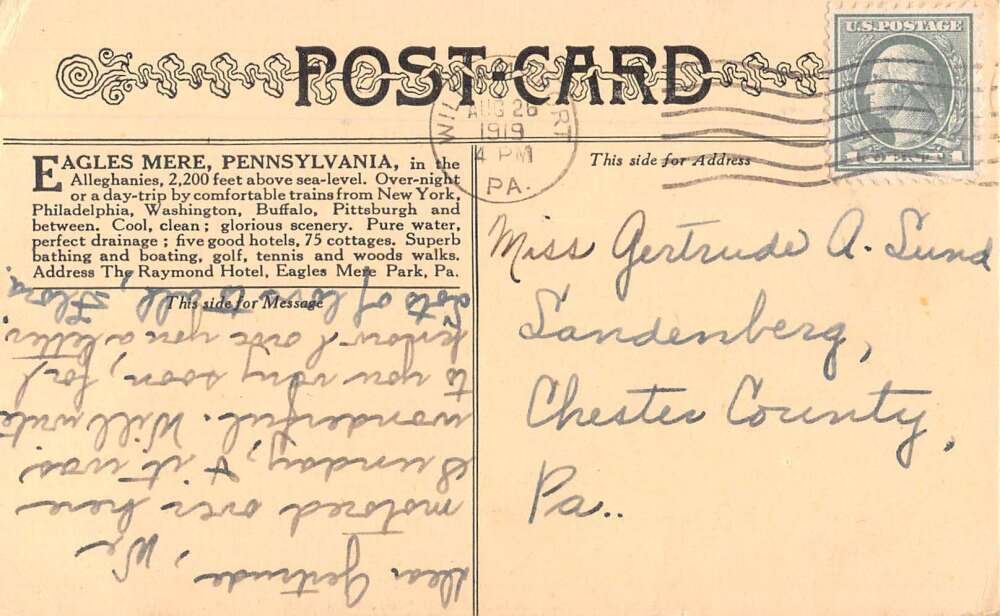 POST·CARD
AUG 26
1919
4 PM
PA.
U.S. POSTAGE
EAGLES MERE, PENNSYLVANIA, in the
Alleghanies, 2,200 feet above sea-level. Over-night
or a day-trip by comfortable trains from New York,
Philadelphia, Washington, Buffalo, Pittsburgh and
between. Cool, clean; glorious scenery. Pure water,
perfect drainage; five good hotels, 75 cottages. Superb
bathing and boating, golf, tennis and woods walks.
Address The Raymond Hotel, Eagles Mere Park, Pa.
This side for Message
Dear Gertrude, We
motored over here
Sunday, & it was
wonderful. Will write
to you very soon, for I
know I owe you a letter.
Lots of love to all, Flora
This side for Address
Miss Gertrude A. Lund
Landenberg,
Chester County,
Pa..